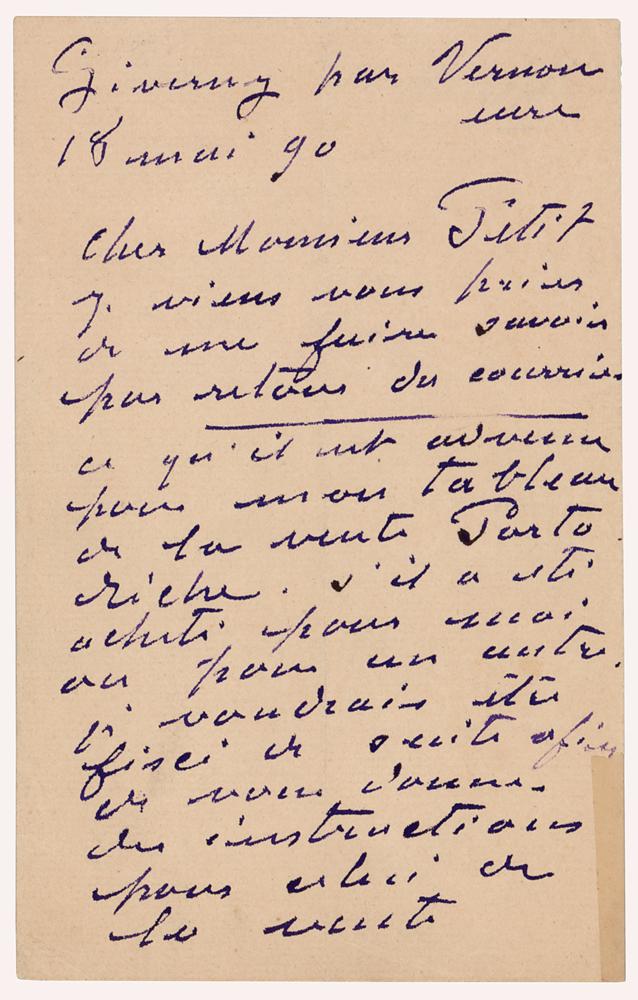 Giverny par Vernon
eure
18 mai 90
Cher Monsieur Petit
Je viens vous prier
de me faire savoir
par retour du courrier
ce qu'il est advenu
pour mon tableau
de la vente Porto
Riche. s'il a été
acheté pour moi
ou pour un autre.
je voudrais être
fixé de suite afin
de vous donner
des instructions
pour celui de
la vente